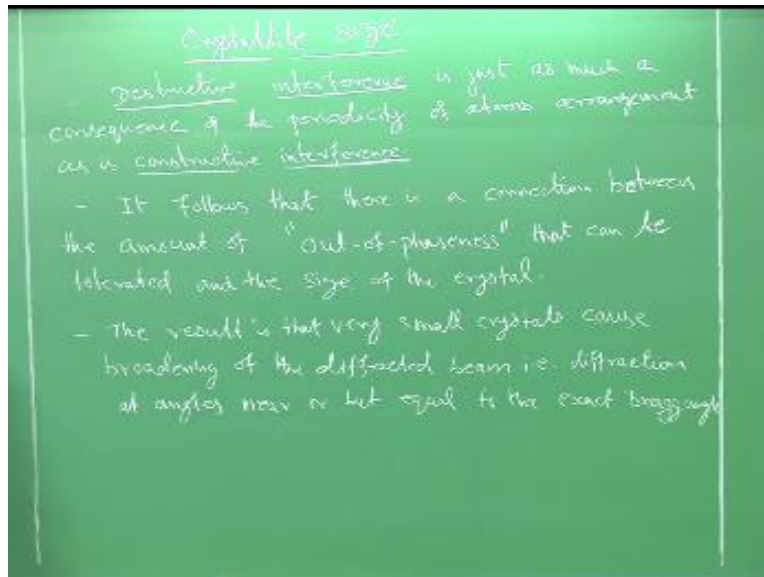 Crystallite size
Destructive interference is just as much a
consequence of the periodicity of atoms arrangement
as is constructive interference.
- It follows that there is a connection between
the amount of "out-of-phaseness" that can be
tolerated and the size of the crystal.
- The result is that very small crystals cause
broadening of the diffracted beam i.e. diffraction
at angles near but equal to the exact bragg angle